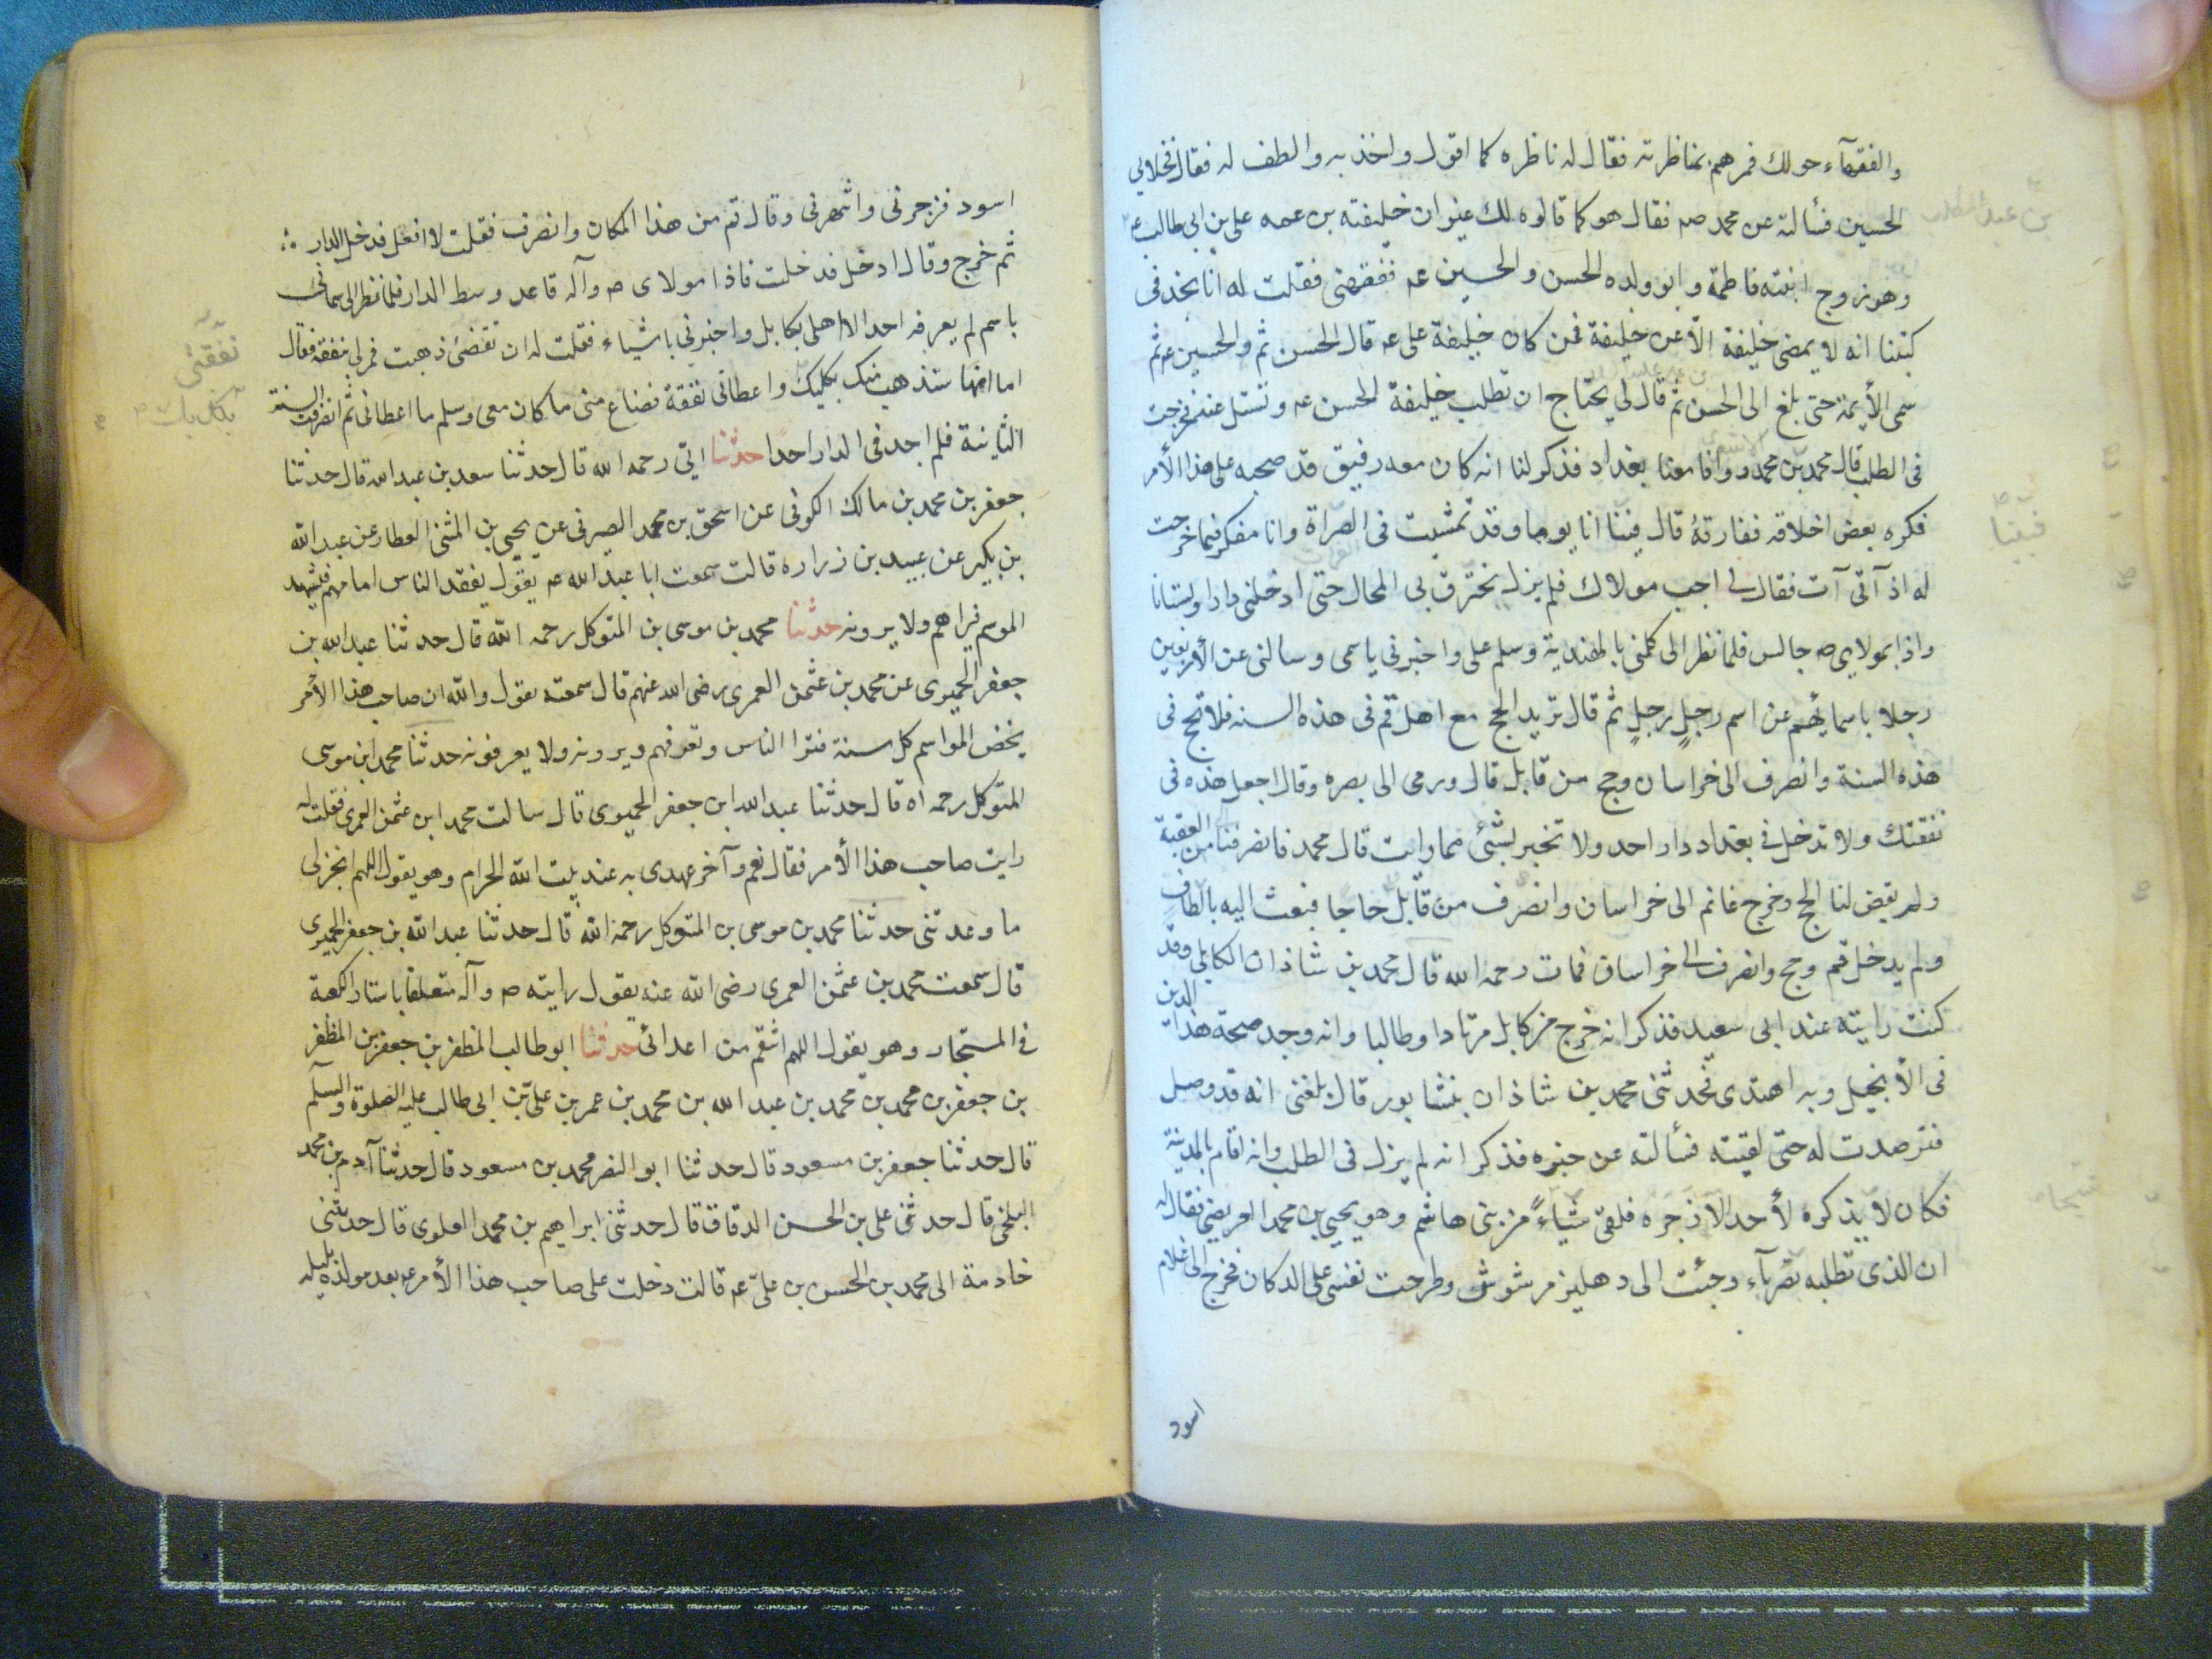 والفقهآء حولك فمرهم بمناظرته فقال له ناظره كما اقول واخذ به والطف له فقال فخلابى
الحسين فسألته عن محمد صم فقال هو كما قالوه لك غير ان خليفته بن عمه على بن ابى طالب عم
وهو زوج ابنته فاطمة وابو ولده الحسن والحسين عم فقلت له انا نجد فى
كتبنا انه لا يمضى خليفة الا عن خليفة فمن كان خليفة على عم قال الحسن ثم والحسين عم ثم
سمى الأيمة حتى بلغ الى الحسن ثم قال لى يحتاج ان تطلب خليفة الحسن عم وتسئل عنه فخرجت
فى الطلب قال محمد بن محمد ووافا معنا بغداد فذكر لنا انه كان معه رفيق قد صحبه على هذا الأمر
فكره بعض اخلاقه ففارقهُ قال فبينا انا يوما وقد تمشيت فى الصراة وانا مفكر فيما خرجت
له اذ آتى آت فقال لى اجب مولاك فلم يزل يخترق بى المحال حتى ادخلنى دارا وبستانا
واذا بمولاى ص جالس فلما نظر الى كلمنى بالهندية وسلم على واخبرنى باسمى وسالنى عن الأربعين
رجلا باسمائهم عن اسم رجلٍ رجلٍ ثم قال تريد الحج مع اهل قم فى هذه السنه فلا تحج فى
هذه السنة وانصرف الى خراسان وحج من قابل قال ورمى الى بصره وقال اجعل هذه فى
نفقتك ولا تدخل فى بغداد دار احد ولا تخبر بشئ مما رايت قال محمد فانصرفنا من العقبة
ولم يقض لنا الحج وخرج غانم الى خراسان وانصرف من قابل حاجا فبعث اليه بالطاف
ولم يدخل قم وحج وانصرف الى خراسان فمات رحمه الله قال محمد بن شاذان الكابلى وقد
كنت رايته عند ابى سعيد فذكر انه خرج من كابل مرتادا وطالبا وانه وجد صحة هذا الدين
فى الأنجيل وبه اهتدى فحدثنى محمد بن شاذان بنشابور قال بلغنى انه قد وصل
فترصدت له حتى لقيته فسألته عن خبره فذكر انه لم يزل فى الطلب وانه اقام بالمدينة
فكان لا يذكره لأحد الا زجره فلقى شياءً من بنى هاشم وهو يحيى بن محمد العريضى فقال له
ان الذى تطلبه بصريآء وجئت الى دهليز مرشوش وطرحت نفسى على الدكان فخرج الى غلام
اسود
بن عبد المطلب
فبينا
اسود فزجرنى وانتهرنى وقال قم من هذا المكان وانصرف فقلت لا افعل فدخل الدار
ثم خرج وقال ادخل فدخلت فاذا مولاى ص وآله قاعد وسط الدار فلما نظر الى سمانى
باسم لم يعرفه احد الا اهلى بكابل واخبرنى باشياء فقلت له ان نفقتى ذهبت فمر لى بنفقة فقال
اما انها ستذهب منك بكذبك واعطانى نفقة فضاع منى ما كان معى وسلم ما اعطانى ثم انصرفت السنة
الثانية فلم اجد فى الدار احدا حدثنا ابى رحمه الله قال حدثنا سعد بن عبد الله قال حدثنا
جعفر بن محمد بن مالك الكوفى عن اسحق بن محمد الصيرفى عن يحيى بن المثنى العطار عن عبد الله
بن بكير عن عبيد بن زراره قالت سمعت ابا عبد الله عم يقول يفقد الناس امامهم فيشهد
الموسم فيراهم ولا يرونه حدثنا محمد بن موسى بن المتوكل رحمه الله قال حدثنا عبد الله بن
جعفر الحميرى عن محمد بن عثمن العمرى رضى الله عنهم قال سمعته يقول والله ان صاحب هذا الأمر
يحضر المواسم كل سنة فترا الناس وتعرفهم ويرونه ولا يعرفونه حدثنا محمد ابن موسى
المتوكل رحمه اه قال حدثنا عبد الله ابن جعفر الحميرى قال سالت محمد ابن عثمن العمرى فقلت له
رايت صاحب هذا الأمر فقال نعم وآخر عهدى به عند بيت الله الحرام وهو يقول اللهم انجز لى
ما وعدتنى حدثنا محمد بن موسى بن المتوكل رحمه الله قال حدثنا عبد الله بن جعفر الحميرى
قال سمعت محمد بن عثمن العمرى رضى الله عنه يقول رايته ص وآله متعلقا باستار الكعبة
فى المستجار وهو يقول اللهم انتقم من اعدائى حدثنا ابو طالب المظفر بن جعفر بن المظفر
بن جعفر بن محمد بن محمد بن عبد الله بن محمد بن عمر بن على بن ابى طالب عليه الصلوة والسلم
قال حدثنا جعفر بن مسعود قال حدثنا ابو النضر محمد بن مسعود قال حدثنا آدم بن محمد
البلخى قال حدثنى على بن الحسن الدقاق قال حدثنى ابراهيم بن محمد العلوى قال حدثتنى
خادمة الى محمد بن الحسن بن على عم قالت دخلت على صاحب هذا الأمر عم بعد مولده بليله
نفقتى